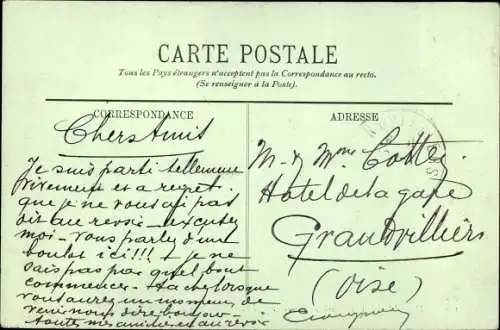 CARTE POSTALE
Tous les Pays étrangers n'acceptent pas la Correspondance au recto.
(Se renseigner à la Poste).
CORRESPONDANCE
Chers Amis
Je suis parti tellement
vivement et a regret
que je ne vous ai pas
dit au revoir - excusez
moi - vous parlez d'un
boulot ici!!! & je ne
sais pas par quel bout
commencer - tachez lorsque
vous aurez un moment de
venir nous dire bonjour -
toutes mes amities et au revoir
ADRESSE
M. & Mme
Hotel de la gare
Grandvilliers
(Oise)